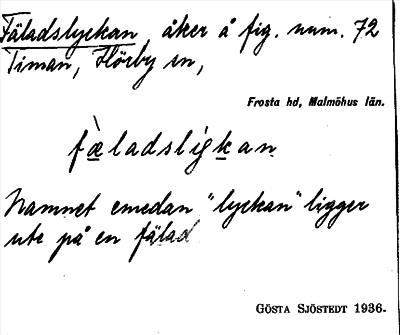 Fäladslyckan, åker å fig. num. 72
Timan, Hörby sn,
Frosta hd, Malmöhus län.
fæ̀ladslykan
Namnet emedan "lyckan" ligger
ute på en fälad
GÖSTA SJÖSTEDT 1936.